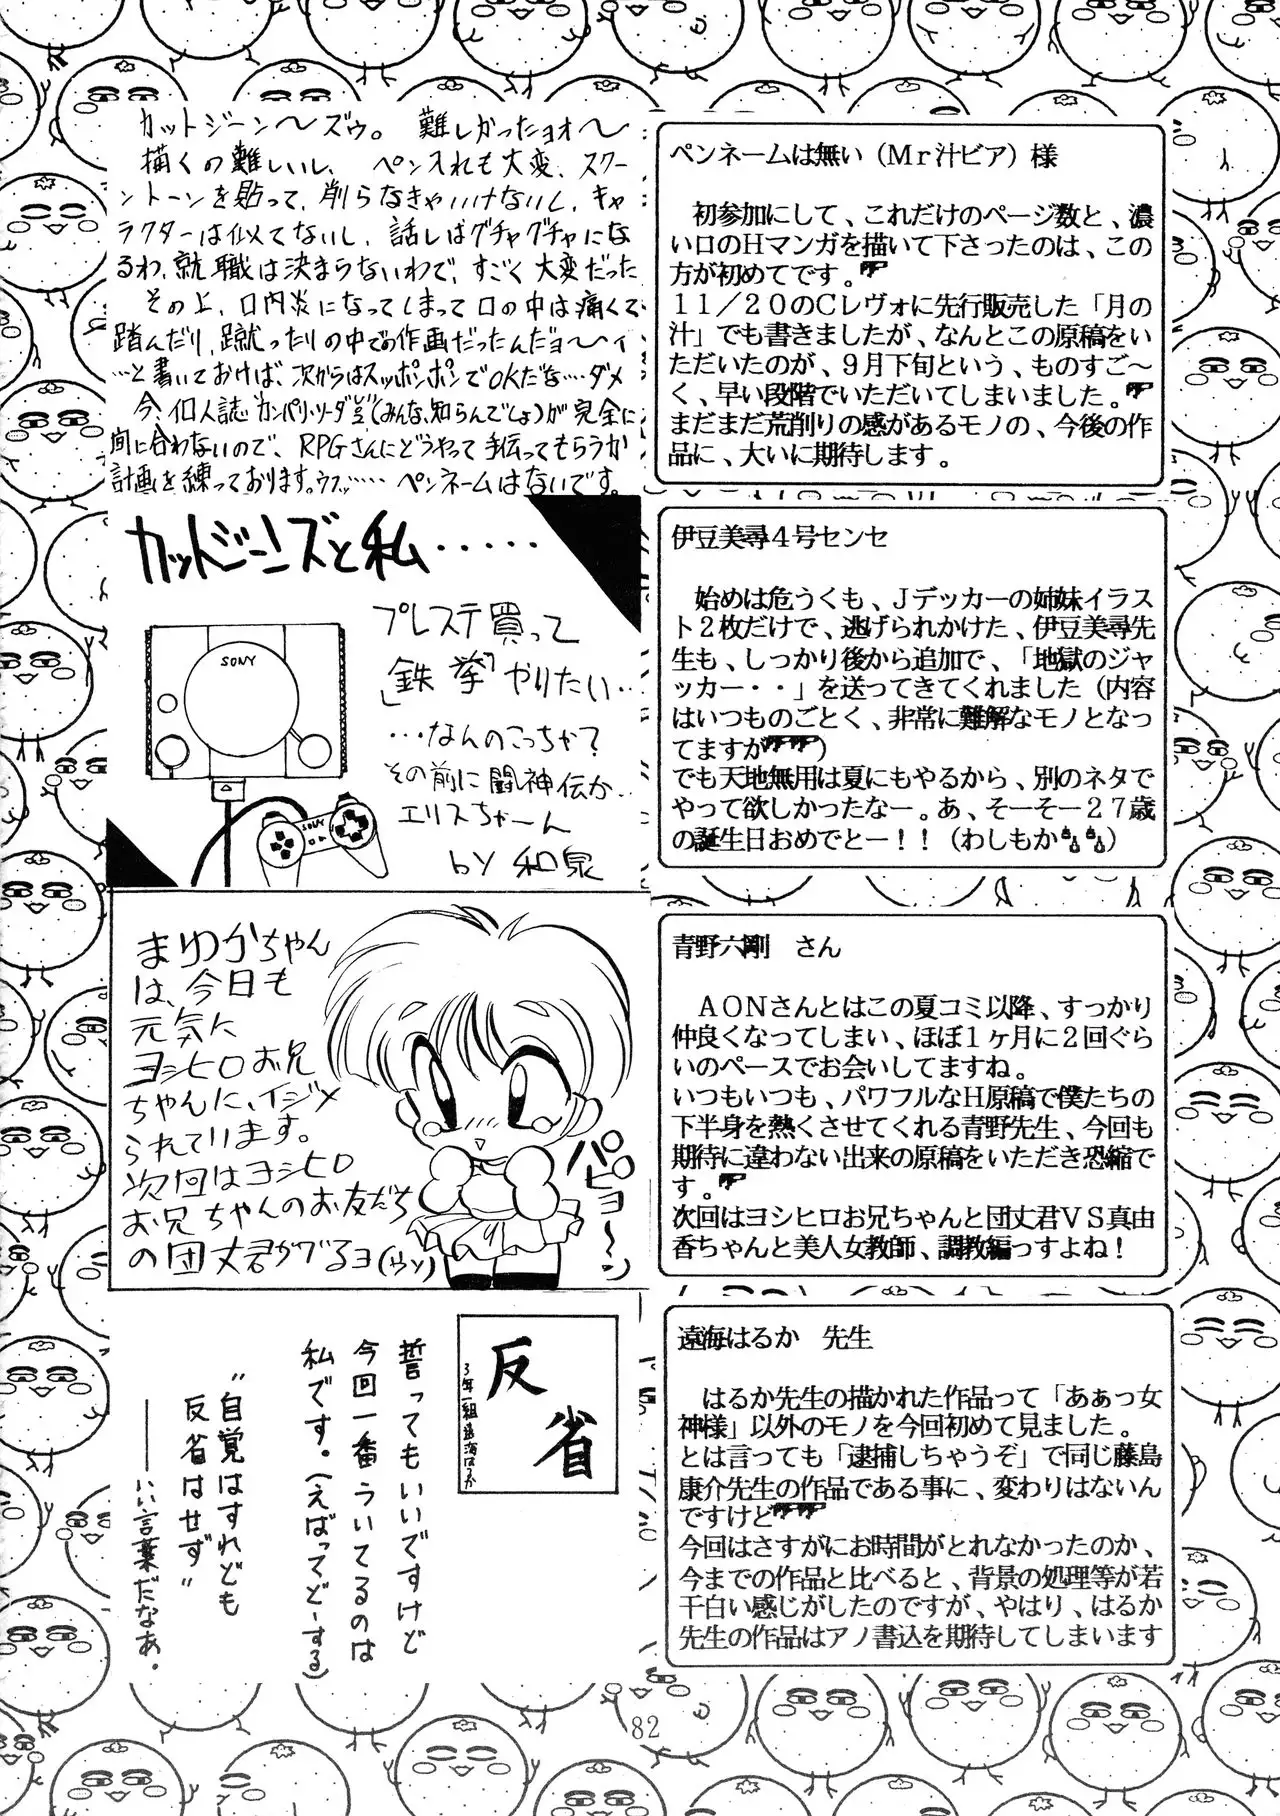 カットジーン〜ズゥ。難しかったョオ〜
描くの難しいし、ペン入れも大変、スクリ
ーントーンを貼って、削らなきゃいけないし、キャ
ラクターは似てないし、話しはグチャグチャにな
るわ、就職は決まらないわで、すごく大変だった
その上、口内炎になってしまって口の中は痛くて
踏んだり、蹴ったりの中での作画だったんだヨ〜ィ
…と書いておけば、次からはスッポンポンでOKだな…ダメ
今、個人誌"カンパリ・ソーダ"(みんな、知らんでしょ)が完全に
間に合わないので、RPGさんにどうやって手伝ってもらうか
計画を練っております。ウフッ…… ペンネームはないです。
ペンネームは無い（Mr汁ビア）様
初参加にして、これだけのページ数と、濃
い口のHマンガを描いて下さったのは、この
方が初めてです。
11／20のCレヴォに先行販売した「月の
汁」でも書きましたが、なんとこの原稿をい
ただいたのが、9月下旬という、ものすご〜
く、早い段階でいただいてしまいました。
まだまだ荒削りの感があるモノの、今後の作
品に、大いに期待します。
カットジーンズと私・・・・・
SONY
プレステ買って
「鉄拳」やりたい…
…なんのこっちゃ?
その前に闘神伝か…
エリスちゃーん
by 和泉
SONY
伊豆美尋4号センセ
始めは危うくも、Jデッカーの姉妹イラス
ト2枚だけで、逃げられかけた、伊豆美尋先
生も、しっかり後から追加で、「地獄のジャ
ッカー・・」を送ってきてくれました（内容
はいつものごとく、非常に難解なモノとなっ
てますが）
でも天地無用は夏にもやるから、別のネタで
やって欲しかったなー。あ、そーそー27歳
の誕生日おめでとー！！（わしもか）
まゆかちゃん
は、今日も
元気に
ヨシヒロお兄
ちゃんに、イジメ
られています。
次回はヨシヒロ
お兄ちゃんのお友だち
の団丈君がでるヨ(ウソ)
パピョ〜ン
青野六剛　さん
AONさんとはこの夏コミ以降、すっかり
仲良くなってしまい、ほぼ1ヶ月に2回ぐら
いのペースでお会いしてますね。
いつもいつも、パワフルなH原稿で僕たちの
下半身を熱くさせてくれる青野先生、今回も
期待に違わない出来の原稿をいただき恐縮で
す。
次回はヨシヒロお兄ちゃんと団丈君VS真由
香ちゃんと美人女教師、調教編っすよね！
反省
3年一組遠海はるか
誓ってもいいですけど
今回一番ういてるのは
私です。(えばってどーする)
"自覚はすれども
反省はせず"
——いい言葉だなあ.
遠海はるか　先生
はるか先生の描かれた作品って「あぁっ女
神様」以外のモノを今回初めて見ました。
とは言っても「逮捕しちゃうぞ」で同じ藤島
康介先生の作品である事に、変わりはないん
ですけど
今回はさすがにお時間がとれなかったのか、
今までの作品と比べると、背景の処理等が若
干白い感じがしたのですが、やはり、はるか
先生の作品はアノ書込を期待してしまいます
82